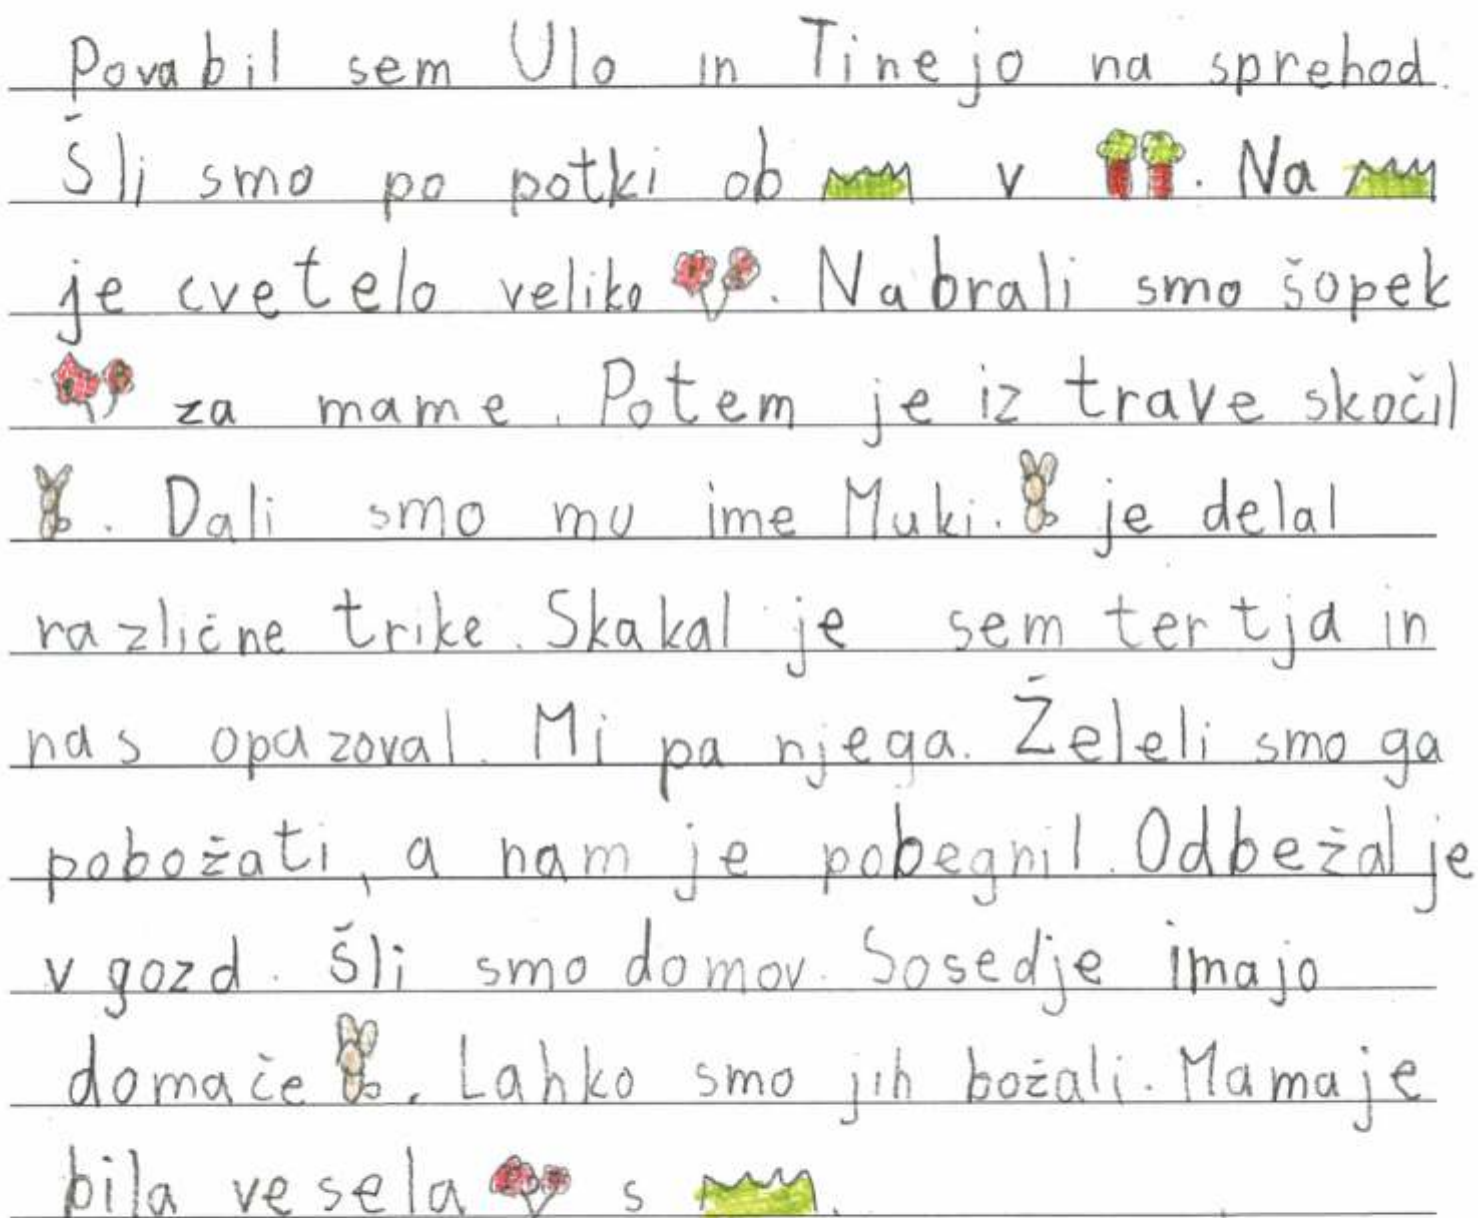 Povabil sem Ulo in Tinejo na sprehod.
Šli smo po potki ob v . Na
je cvetelo veliko . Nabrali smo šopek
za mame. Potem je iz trave skočil
. Dali smo mu ime Muki. je delal
različne trike. Skakal je sem ter tja in
nas opazoval. Mi pa njega. Želeli smo ga
pobožati, a nam je pobegnil. Odbežal je
v gozd. Šli smo domov. Sosedje imajo
domače . Lahko smo jih božali. Mama je
bila vesela s .